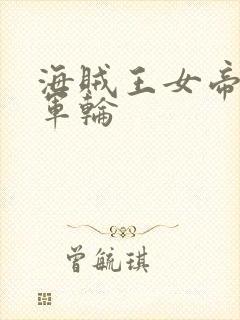 海賊王女帝
軍輪
曾毓琪